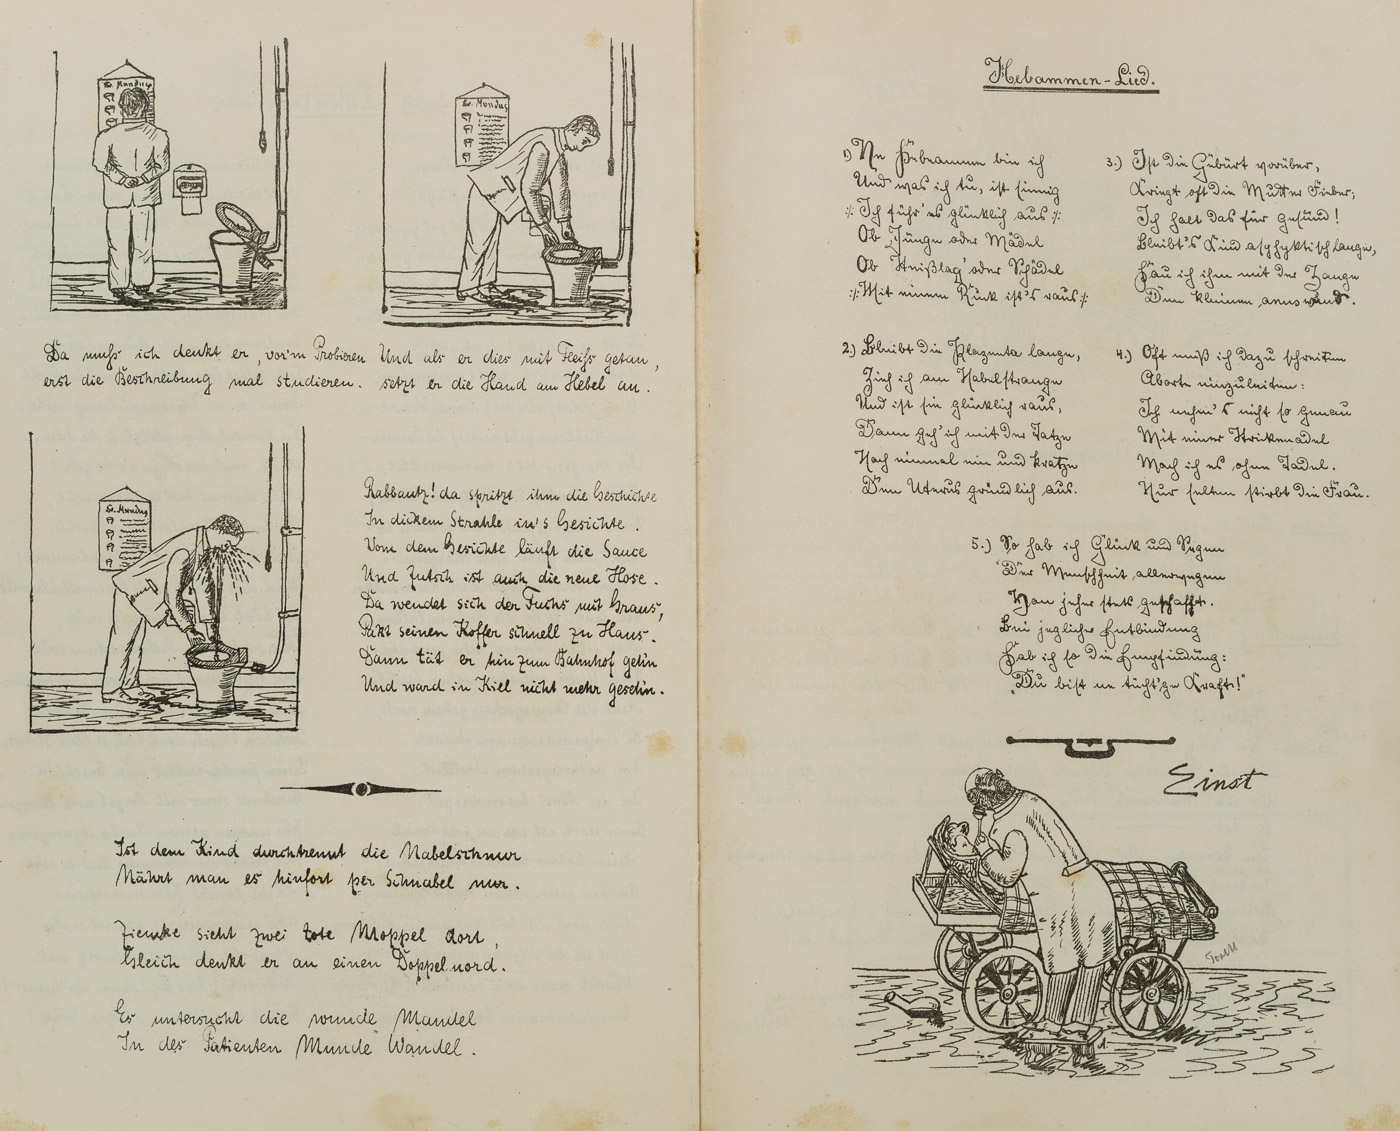 Dr. Mundus
Dr. Mundus
Da muss ich denkt er, vor'm Probieren
erst die Beschreibung mal studieren.
Und als er dies mit Fleiss getan,
setzt er die Hand am Hebel an.
Dr. Mundus
Rabbautz! da spritzt ihm die Geschichte
In dickem Strahle in's Gesichte.
Von dem Gesichte läuft die Sauce
Und futsch ist auch die neue Hose.
Da wendet sich der Fuchs mit Graus,
Pakt seinen Koffer schnell zu Haus.
Dann tät er hin zum Bahnhof geh'n
Und ward in Kiel nicht mehr geseh'n.
Ist dem Kind durchtrennt die Nabelschnur
Nährt man es hinfort per Schnabel nur.
Ziemke sieht zwei tote Moppel dort,
Gleich denkt er an einen Doppelmord.
Es untersucht die wunde Mandel
In des Patienten Munde Wandel.
Hebammen-Lied.
1) Ne Hebamme bin ich
Und was ich tu, ist sinnig
:/: Ich führ' es glücklich aus :/:
Ob Junge oder Mädel
Ob Steißlag' oder Schädel
:/: Mit einem Ruck ist's raus :/:
2.) Bleibt die Plazenta lange,
Zieh ich am Nabelstrange
Und ist sie glücklich raus,
Dann geh' ich mit der Tatze
Noch einmal ein und kratze
Den Uterus gründlich aus.
3.) Ist die Geburt vorüber,
Kriegt oft die Mutter Fieber;
Ich halt das für gesund!
Bleibt's Kind asphyktisch lange,
Hau ich ihm mit der Zange
Den kleinen
4.) Oft muß ich dazu schreiten
Aborte einzuleiten:
Ich nehm's nicht so genau
Mit einer Stricknadel
Mach ich es ohne Tadel.
Nur selten stirbt die Frau.
5.) So hab ich Glück und Segen
Der Menschheit allerwegen
Von jeher stets geschafft.
Bei jeglicher Entbindung
Hab ich so die Empfindung:
"Du bist ne tücht'ge Kraft!"
Einst